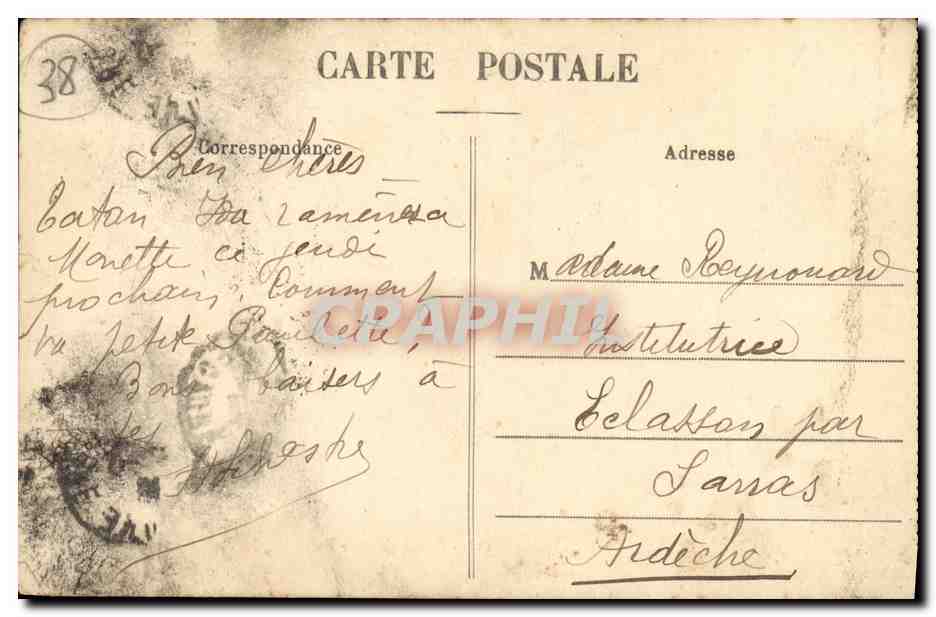 38
CARTE POSTALE
Correspondance
Adresse
Bien chères
Tatan Ida ramènera
Monette ce jeudi
prochain. Comment
va petite Paulette?
Bons baisers à
tes
Madame Reynouard
Institutrice
Eclassan par
Sarras
Ardèche
CPAPHIL